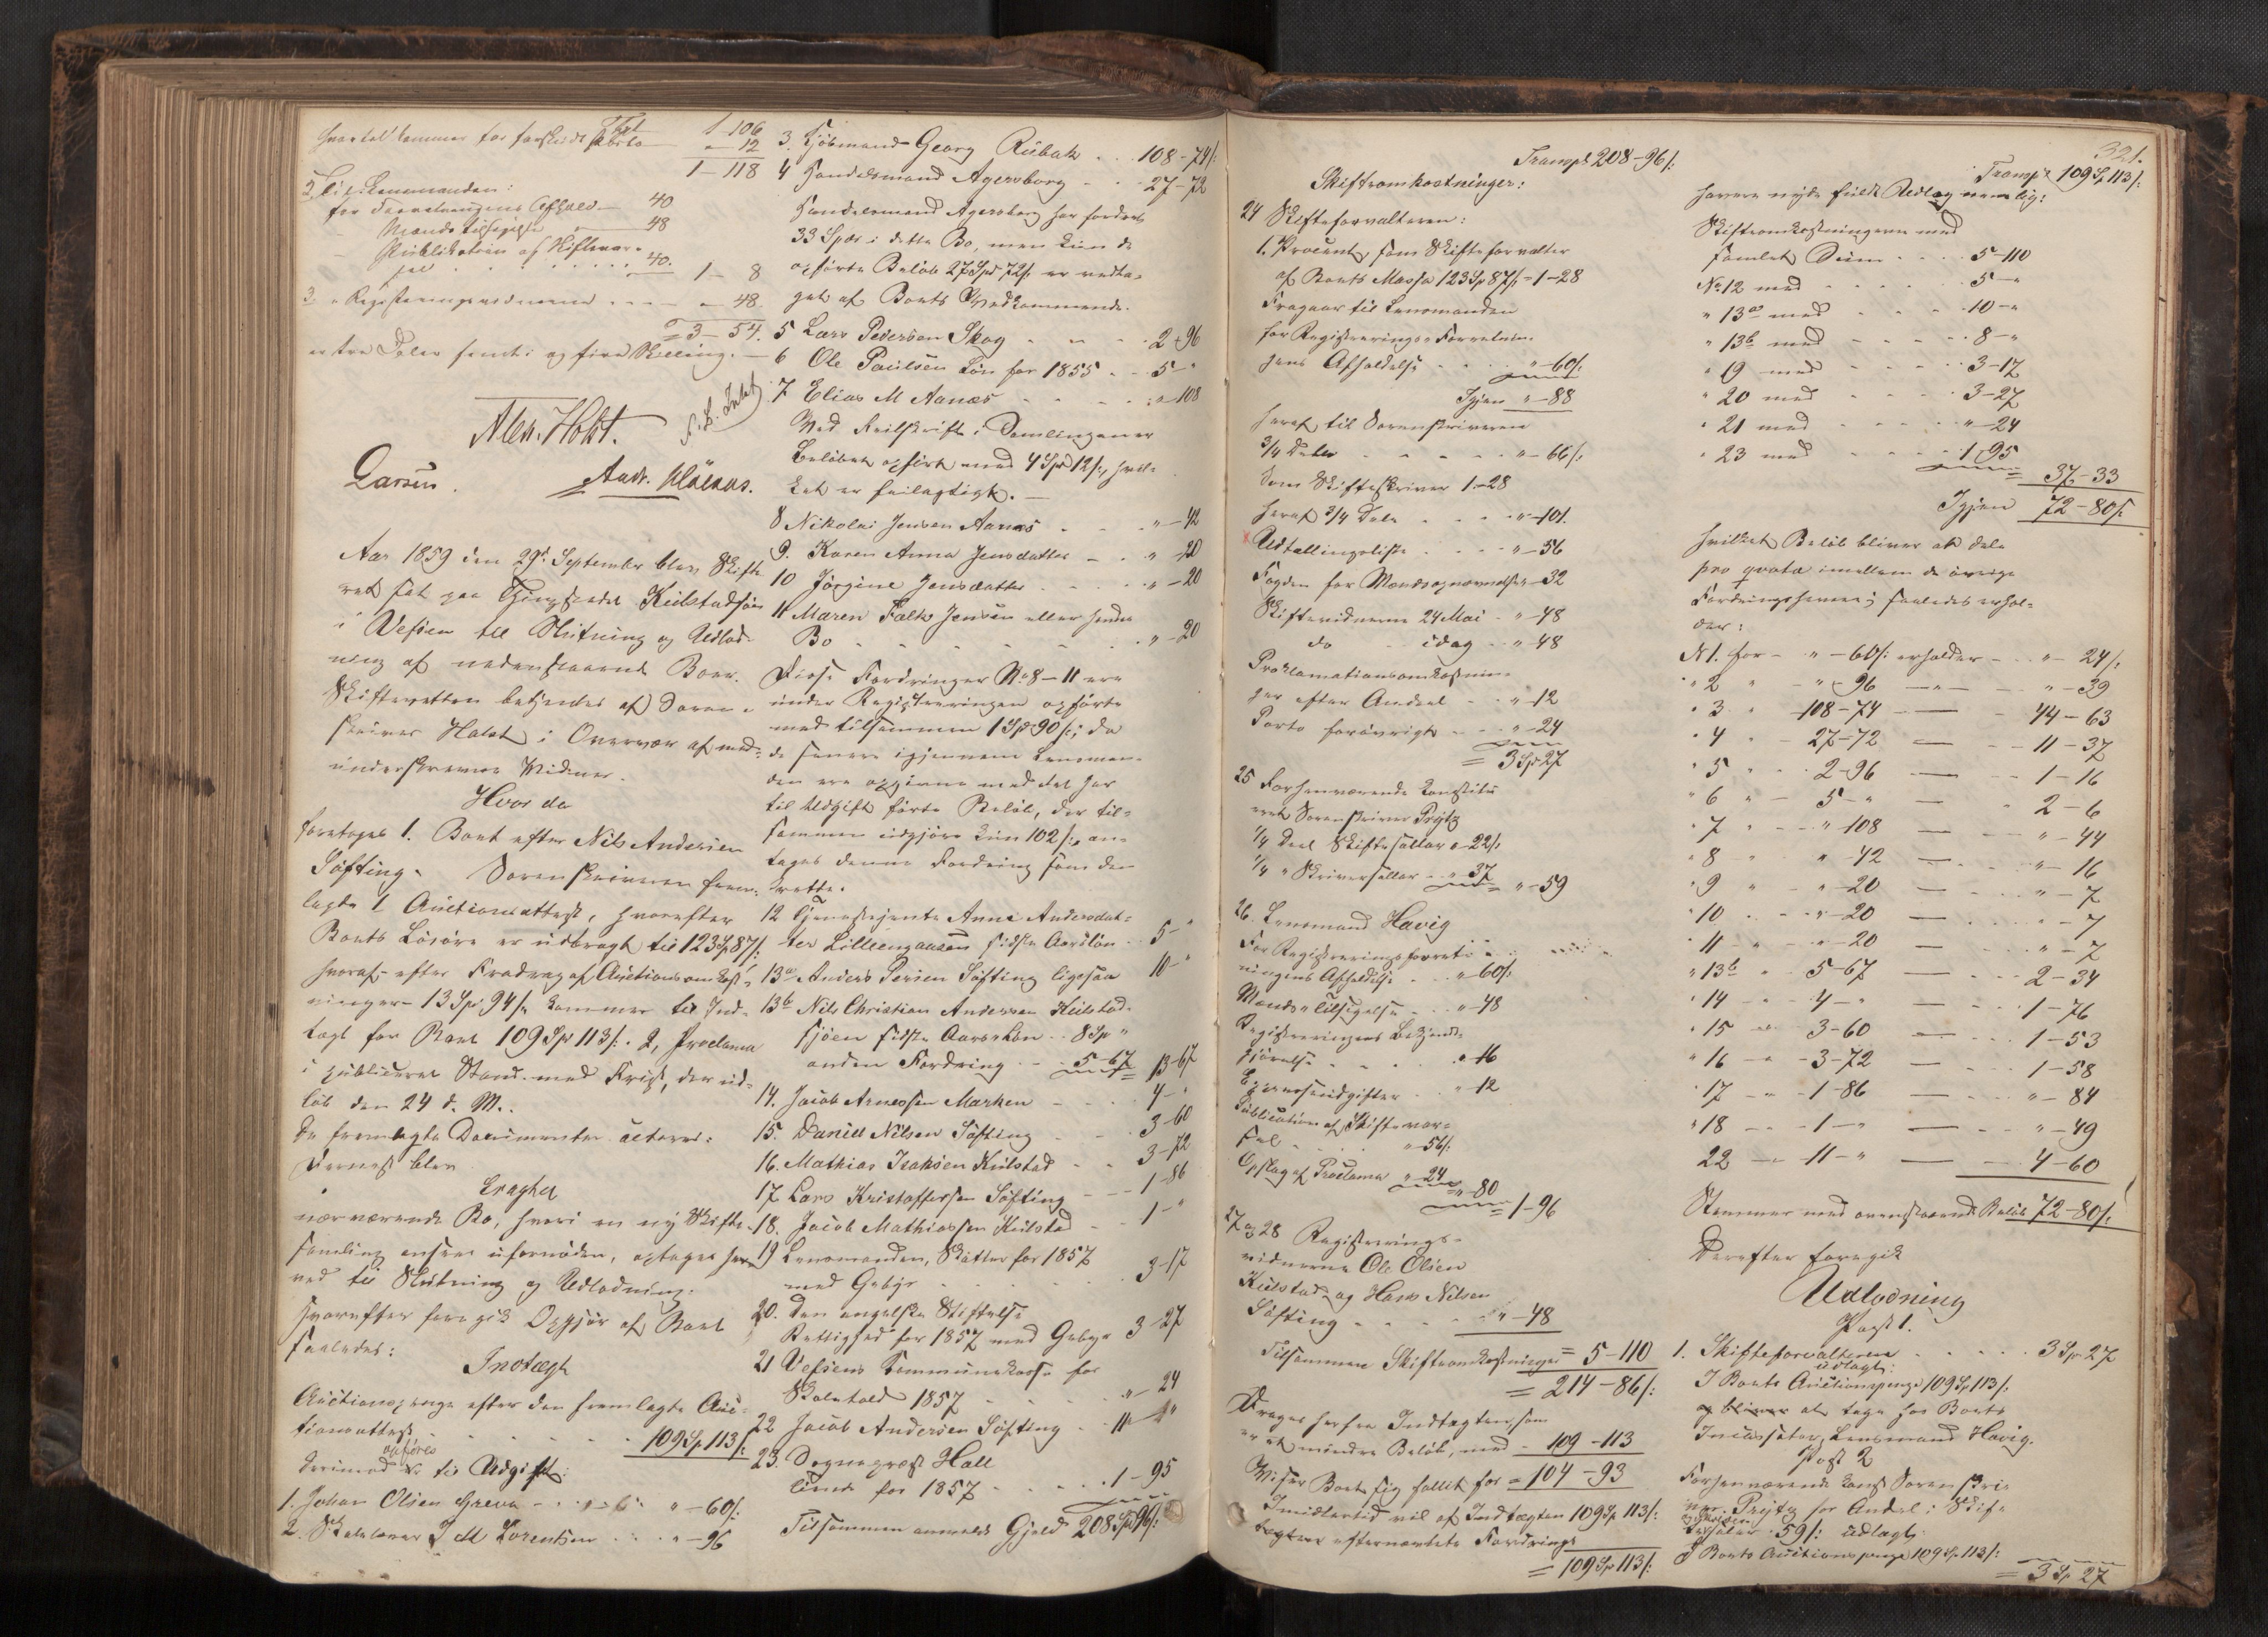 Tpt 1-106
hvortil kommer for forskudt Porto " 12
1-118
2, Til Lensmanden:
for Forretningens Afhold 40
Mænds Tilsigelse 48
Publikation af Skiftevar-
sel 40. 1- 8
3 " Registreringsvidnerne " 48
= 3-54.
er tre Daler femti og fire Skilling. —
Alex. Holst.
Larsen.
Aar 1859 den 29d September blev Skifte
ret sat paa Thingstedet Kulstadsjøen
i Vefsen til Slutning og Udlod-
ning af nedenstaaende Boer.
Skifteretten betjentes af Soren-
skriver Holst i Overvær af med-
underskrevne Vidner.
Hvor da
foretoges 1. Boet efter Nils Andersen
Søfting. Sorenskriveren frem-
lagde 1 Auctionsattest, hvorefter
Boets Løsøre er udbragt til 123 Sp 87 /:
hvoraf efter Fradrag af Auctionsomkost-
ninger 13 Sp 94 /: kommer til Ind-
tægt for Boet 109 Sp 113 /:. 2, Proclama
i publiceret Stand med Frist, der ud-
løb den 24 d. M..
De fremlagte Documenter acteres:
Dernæst blev
Eragtet
nærværende Bo, hvori en ny Skifte-
samling ansees ufornøden, optages her-
ved til Slutning og Udlodning.
Hvorefter foregik Opgjør af Boet
saaledes:
Indtægt
Auctionspenge efter den fremlagte Auc-
tionsattest 109 Sp 113 /:
Derimod opføres til Udgift:
1. Johan Olsen Greva " -60 /:
2. Skolelærer J M Lorentsen " -96
3. Kjøbmand Georg Rubak 108-74 /:
4 Handelsmand Agersborg 27-72
Handelsmand Agersborg har fordret
33 Spdr i dette Bo, men kun de
opførte Beløb 27 Spd 72 /: er vedta-
get af Boets Vedkommende.
5 Lars Pedersen Skog 2-96
6 Ole Paulsen Løn for 1855 5-"
7 Elias M Aanes " 108
Ved Feilskrift i Samlingen er
Beløbet opført med 4 Spd 12 /:, hvil-
ket er feilagtigt. —
8 Nikolai Jensen Aanes " -42
9. Karen Anna Jensdatter " -20
10 Jørgine Jensdatter " -20
11 Maren Falk Jensen eller hendes
Bo " -20
Disse Fordringer No 8-11 ere
under Registreringen opførte
med tilsammen 1 Sp 90 /:; da
de senere igjennem Lensman-
den ere opgivne med det her
til Udgift førte Beløb, der til-
sammen udgjøre kun 102 /:, an-
tages denne Fordring som den
rette.
12 Tjenestejente Anne Andersdat-
ter Lilleengaasen sidste Aarsløn 5-"
13a Anders Persen Søfting ligesaa 10-"
13b Nils Christian Andersen Kulstad-
sjøen sidste Aars Løn 8 Sp "
anden Fordring 5-67 13-67
14. Jacob Arnessen Marken 4-"
15. Daniel Nilsen Søfting 3-60
16. Mathias Isaksen Kulstad 3-72
17 Lars Kristoffersen Søfting 1-86
18. Jacob Mathiassen Kulstad 1-"
19 Lensmanden, Skatter for 1857
med Gebyr 3-17
20. Den angelske Stiftelse
Rettighed for 1857 med Gebyr 3-27
21 Vefsens Kommunekasse for
Skoletold 1857 " 24
22 Jacob Andersen Søfting 11-"
23. Sogneprest Hall
Tiende for 1857 1-95
Tilsammen anmeldt Gjeld 208 Spd 96 /:
Transpt 208-96 /:
Skifteomkostninger:
24 Skifteforvalteren:
1. Procent som Skifteforvalter
af Boets Masse 123 Sp 87 /: = 1-28
Fragaar til Lensmanden
for Registrerings-Forretnin-
gens Afholdelse " -60 /:
Igjen " -88
heraf til Sorenskriveren
3/4 Dele " -66 /:
Som Skifteskriver 1-28
heraf 3/4 Dele " -101.
Udtællingsliste " -56
Fogden for Mændsopnævnelse -32
Skiftevidnerne 24 Mai " -48
do idag " -48
Proklamationsomkostnin-
ger efter Andeel " -12
Porto forøvrigt " -24
= 3 Sp 27
25 Forhenværende konstitu-
eret Sorenskriver Prytz
1/4 Deel Skiftesallar " -22 /:
1/4 " Skriversallar " 37 = " -59
26. Lensmand Havig
For Registreringsforret-
ningens Afholdelse " -60 /:
Mænds Tilsigelse " -48
Registreringens Bekjendt-
gjørelse " 16
Expressudgifter " -12
Publication af Skiftevar-
sel " -56 /:
Opslag af Proclama " 24 " -80
= 1-96
27 og 28 Registrerings-
vidnerne Ole Olsen
Kulstad og Hans Nilsen
Søfting " -48
Tilsammen Skifteomkostninger = 5-110
= 214-86 /:
Drages herfra Indtægten, som
er et mindre Beløb, med 109-113
Viser Boet sig fallit for = 104-93
Imidlertid vil af Indtægten 109 Sp 113 /:
efternævnte Fordrings-
= 109 Sp 113 /:
321.
Transpt 109 Sp 113 /:
havere nyde fuldt Udlæg nemlig:
Skifteomkostningerne med
samlet Sum 5-110
No 12 med 5-"
" 13a med 10-"
" 13b med 8-"
" 19 med 3-17
" 20 med 3-27
" 21 med " -24
" 23 med 1-95
= 37-33
Igjen 72-80 /:
hvilket Beløb bliver at dele
pro qvota imellem de øvrige
Fordringshavere; saaledes erhol-
der:
N 1. for " -60 /: erholder " 24 /:
" 2 " " 96 — " — " -39
" 3 " 108-74 — 44-63
" 4 " 27-72 — 11-37
" 5 " 2-96 — 1-16
" 6 " 5-" — 2-6
" 7 " " 108 — " -44
" 8 " " 42 — " -16
" 9 " " -20 — " -7
" 10 " " -20 — " -7
" 11 " " -20 — " -7
" 13b " 5-67 — 2-34
" 14 " 4-" — 1-76
" 15 " 3-60 — 1-53
" 16 " 3-72 — 1-58
" 17 " 1-86 — " -84
" 18 " 1-" — " -49
22 " 11-" — 4-60
Stemmer med ovenstaaende Beløb 72-80 /:
Derefter foregik
Udlodning
Post 1.
1. Skifteforvalteren 3 Sp 27
udlagt:
I Boets Auctionspenge 109 Sp 113 /:
at tage hos Boets
Incassator, Lensmand Havig.
Post 2
Forhenværende konst Sorenskri-
ver Prytz for Andel i Skif-
tesalær 59 /: udlagt:
I Boets Auctionspenge 109 Sp 113 /:
= 3 Sp 27